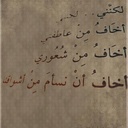 لكنّني
أخَافُ مِنْ عاطفتي
أخَافُ مِنْ شُعُوري
أخافُ أنْ نسأم مِنْ أشواقنا